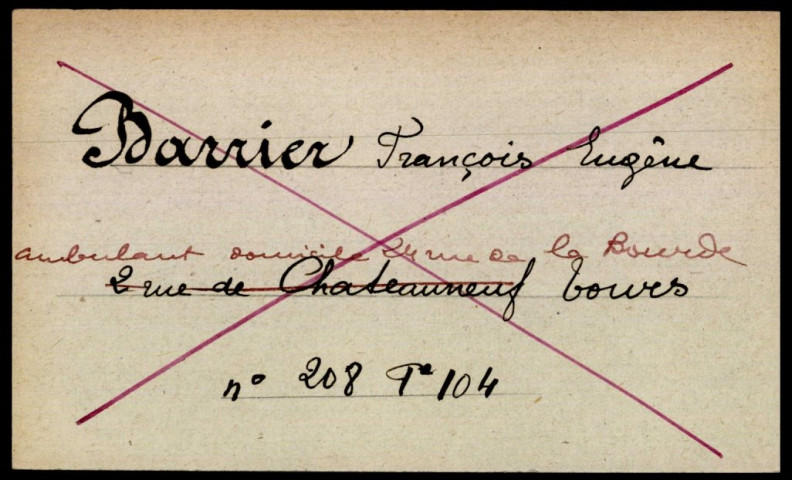 Barrier François Eugène
ambulant domicile 24 rue de la Bourde
2 rue de Chateauneuf Tours
n° 208 Fe 104